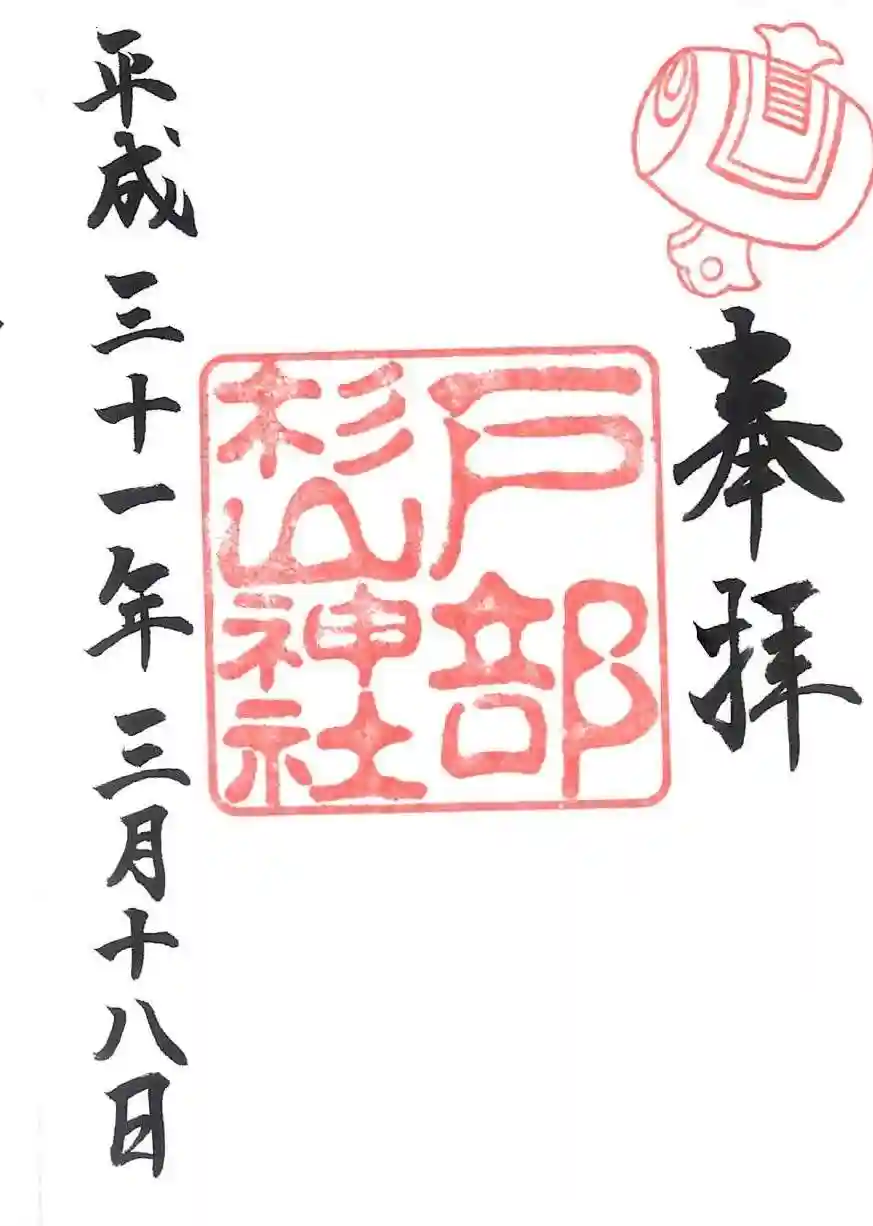 奉拝
戸部
杉山神社
平成三十一年三月十八日